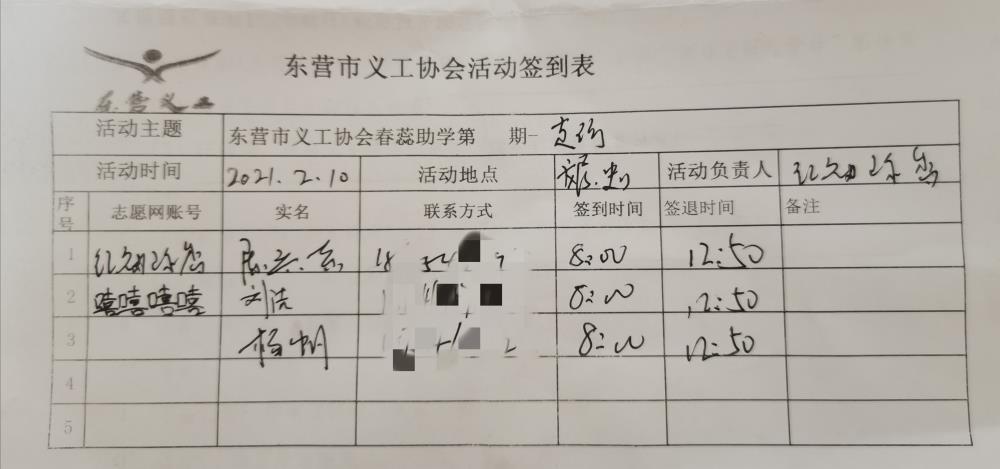 东营义工
东营市义工协会活动签到表
活动主题 东营市义工协会春蕊助学第 期-走访
活动时间 2021.2.10 活动地点 活动负责人
序号 志愿网账号 实名 联系方式 签到时间 签退时间 备注
1 8:00 12:50
2 嘻嘻嘻嘻 刘洁 8:00 12:50
3 杨帆 8:00 12:50
4
5